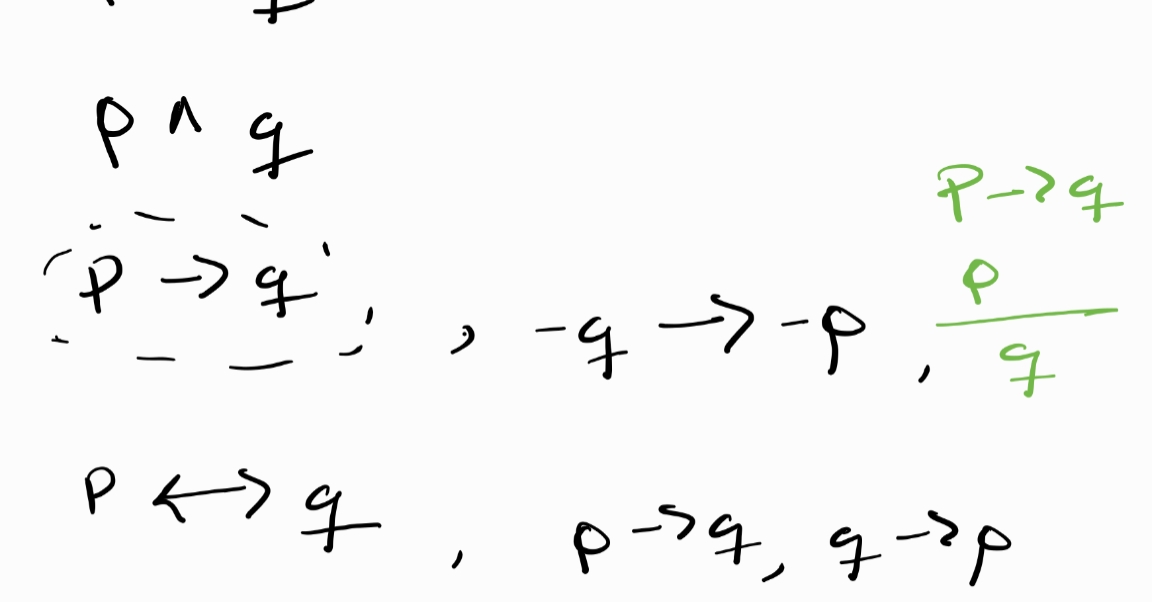 p ∧ q
p → q , -q → -p ,
p → q
p
q
p ↔ q , p → q, q → p